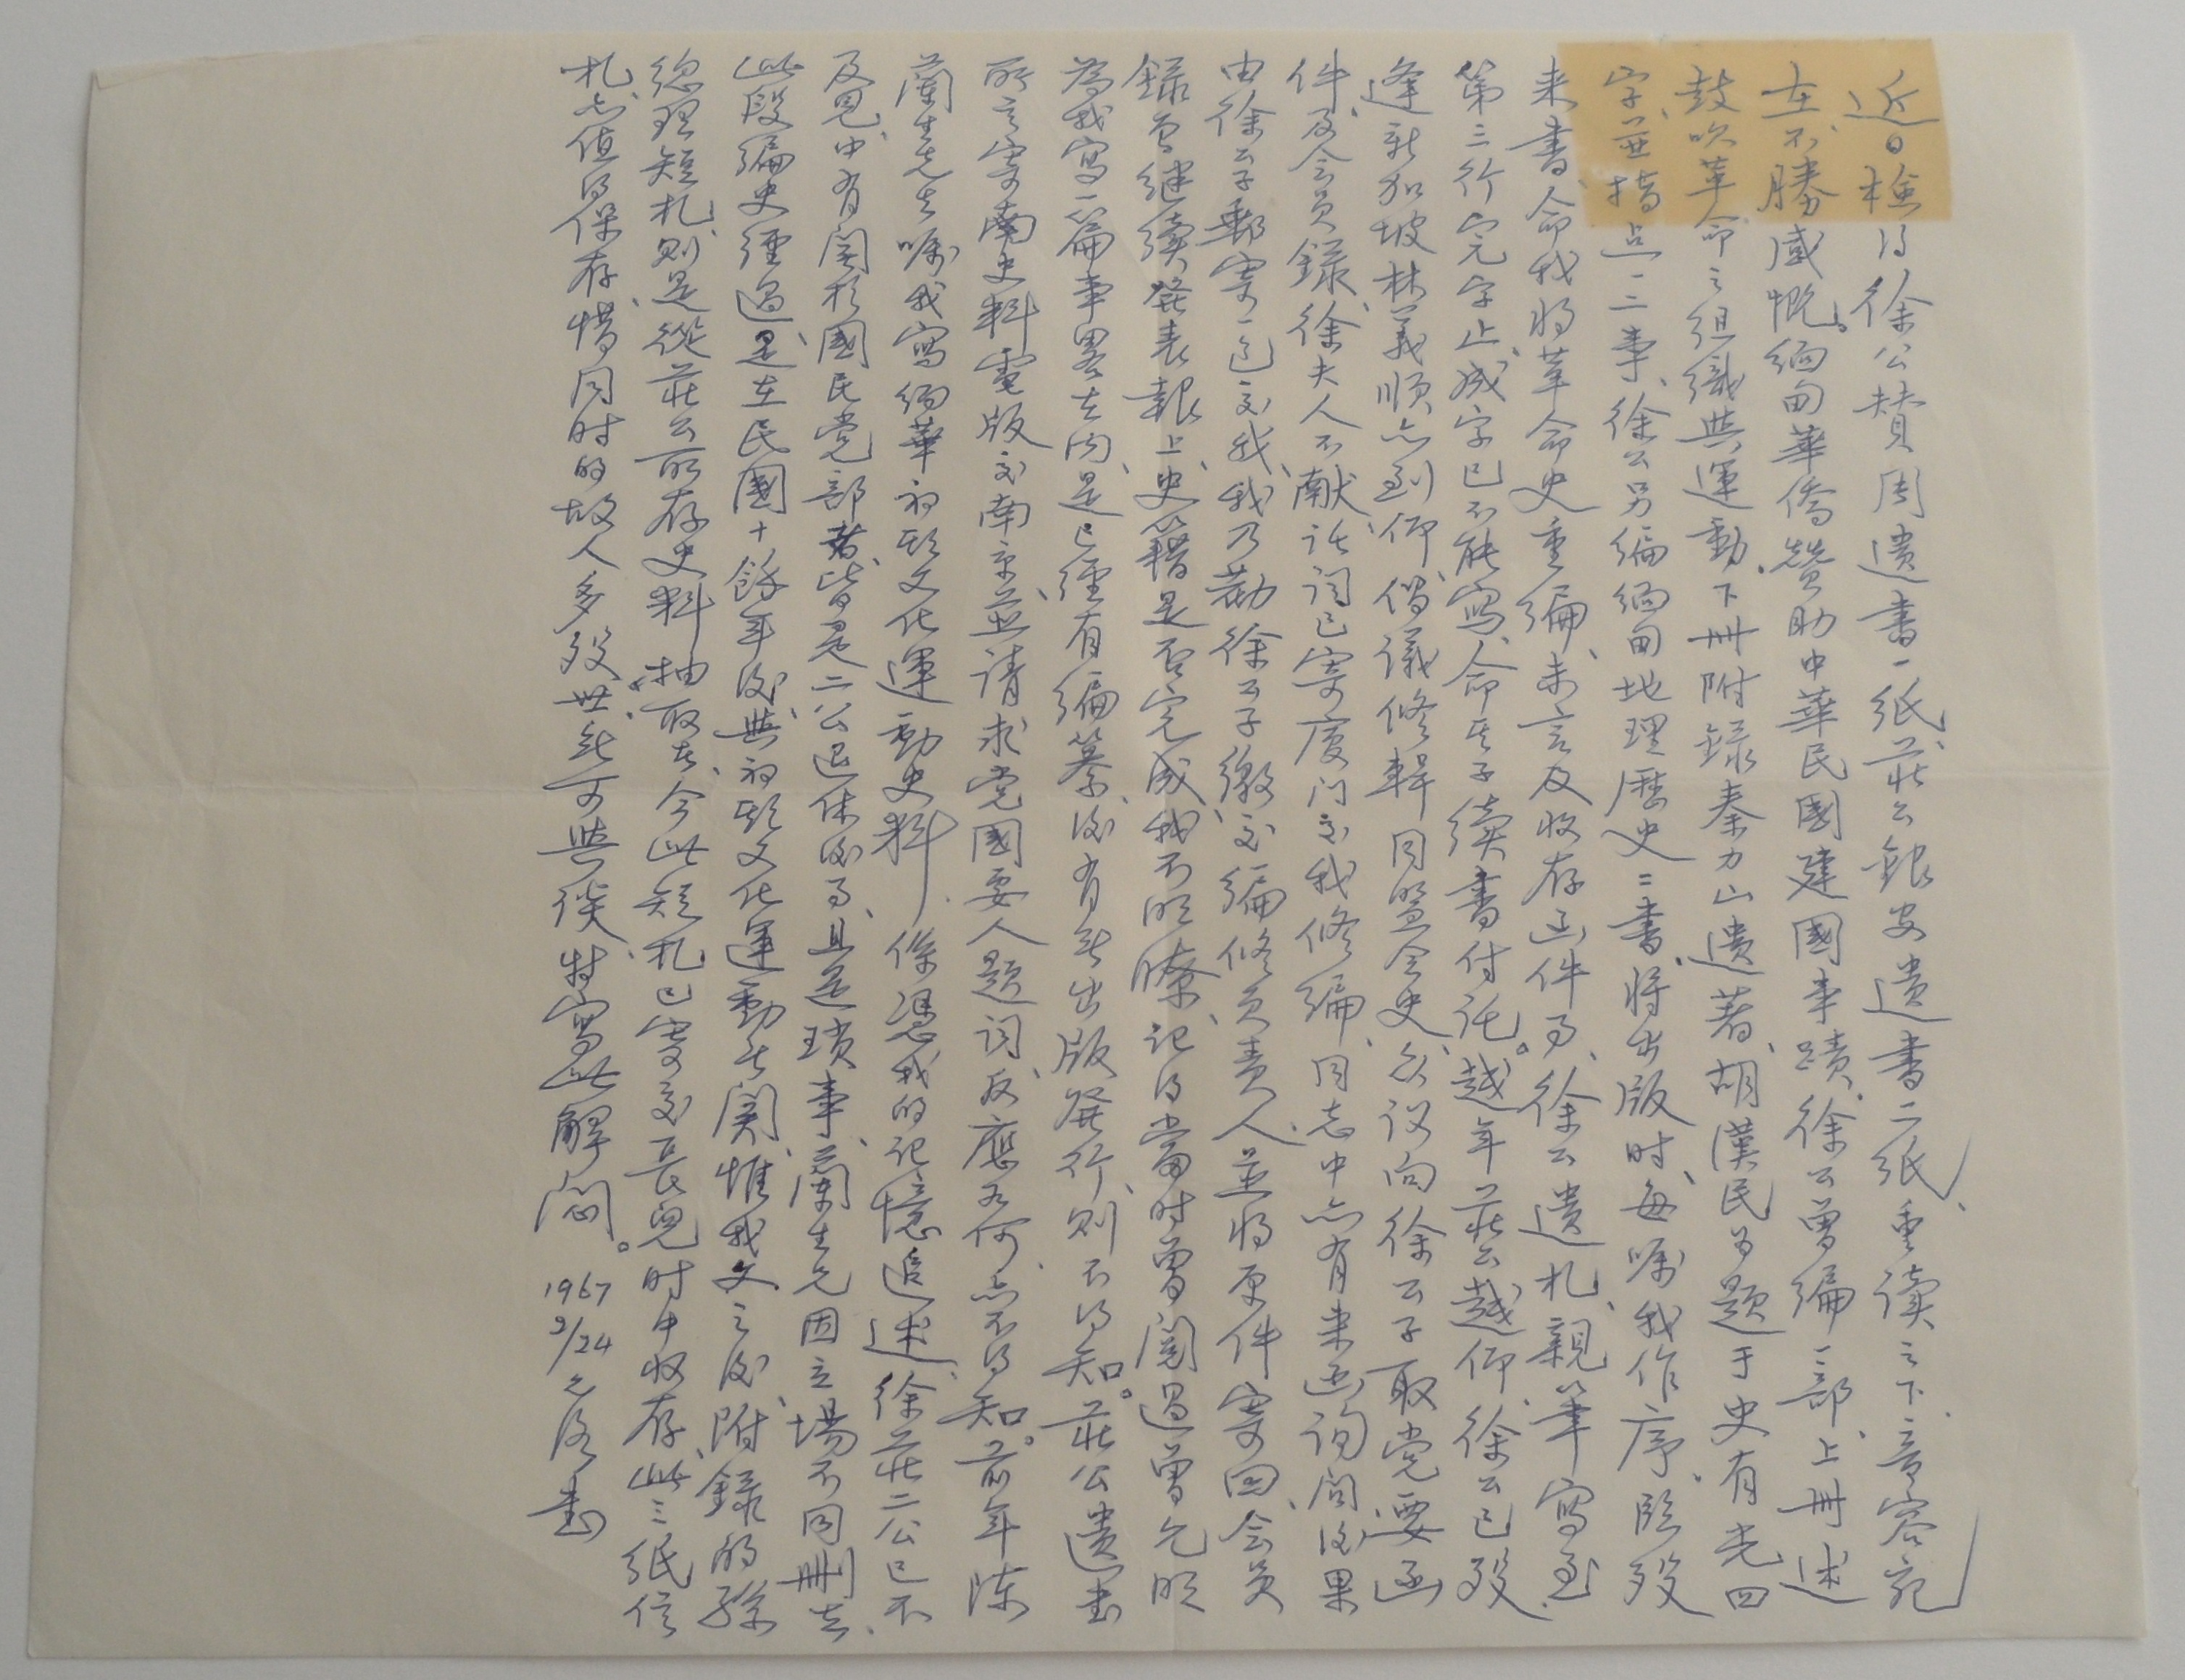 近日檢得徐公贊周遺書一紙、莊公銀安遺書二紙、重讀之下、音容宛
在、不勝感慨。緬甸華僑贊助中華民國建國事蹟、徐公曾編一部、上冊述
鼓吹革命之組織與運動、下冊附錄秦力山遺著、胡漢民為題于史有光四
字、並指点一二事、徐公另編緬甸地理歷史二書、將出版时、每嘱我作序、臨歿
来書、命我將革命史重編、未言及收存函件事、徐公遺札、親筆寫至
第三行完字止、成字已不能寫、命其子續書付託。越年莊公越仰、徐公已歿
逢新加坡林義順亦到仰、偕議修輯同盟会史、众议向徐公子取党要函
件及会員錄、徐夫人不献、託詞已寄厦门交我修編、同志中亦有来函詢問、后果
由徐公子郵寄一包交我、我乃勸徐公子繳交編修負責人、並將原件寄回、会員
錄曾继續発表報上、史籍是否完成、我不明瞭、记得當时曾閱過曾允明
為我寫一篇事畧在內、是已經有編纂、后有無出版発行、則不得知。莊公遺書
所言寄南史料電版交南京、並請求党國要人題词、反應如何、亦不得知。前年陈
蘭生先生嘱我寫緬華初期文化運動史料、係憑我的记憶追述、徐莊二公已不
及見、中有関於國民党部者、皆是二公退休后事、且是瑣事、蘭生兄因立場不同删去、
此段編史經過、是在民國十餘年后、與初期文化運動無関、惟我文之后、附錄的孫
總理短札、則是從莊公所存史料抽取者、今此短札已寄交長兒时中收存、此三纸信
札、亦值得保存、惜同时的故人多歿世、無可與談、特寫此解悶。1967 2/24 允洛書